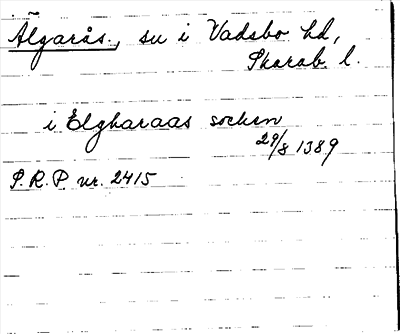 Älgarås., su i Vadsbo hd,
Skarab. l.
i Elgharaas socken
29/8 1389
S.R.P. nr. 2415